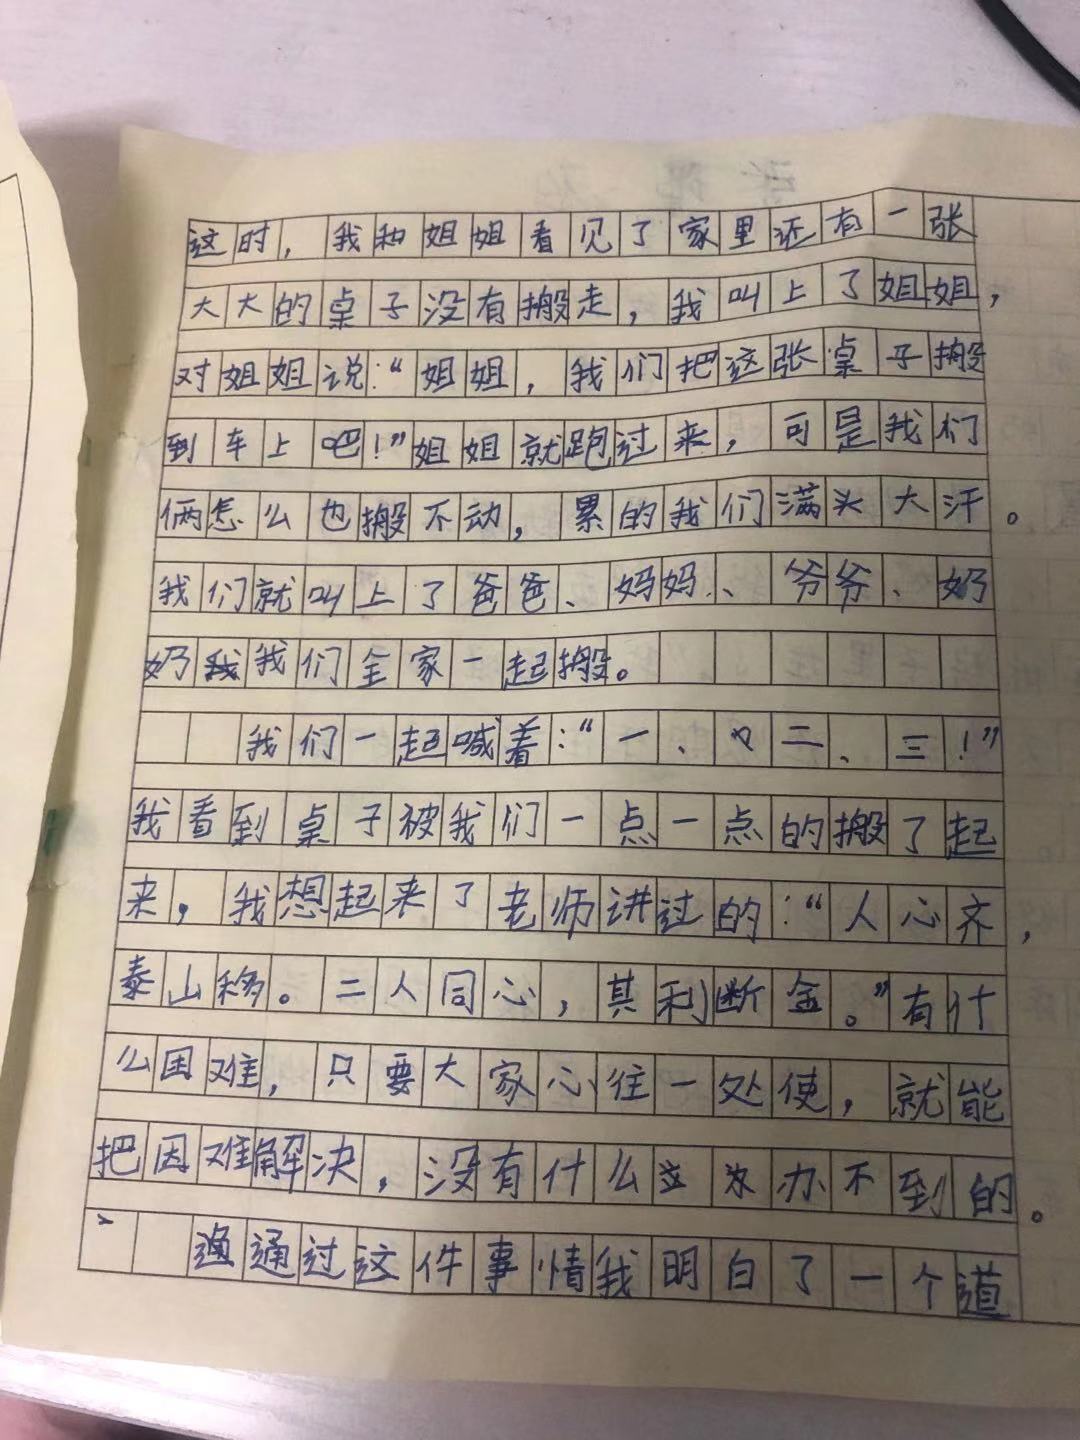 这时，我和姐姐看见了家里还有一张
大大的桌子没有搬走，我叫上了姐姐，
对姐姐说：“姐姐，我们把这张桌子搬
到车上吧！”姐姐就跑过来，可是我们
俩怎么也搬不动，累的我们满头大汗。
我们就叫上了爸爸、妈妈、爷爷、奶
奶我们全家一起搬。
我们一起喊着：“一、二、三！”
我看到桌子被我们一点一点的搬了起
来，我想起来了老师讲过的：“人心齐，
泰山移。二人同心，其利断金。”有什
么困难，只要大家心往一处使，就能
把因难解决，没有什么办不到的。
通过这件事情我明白了一个道